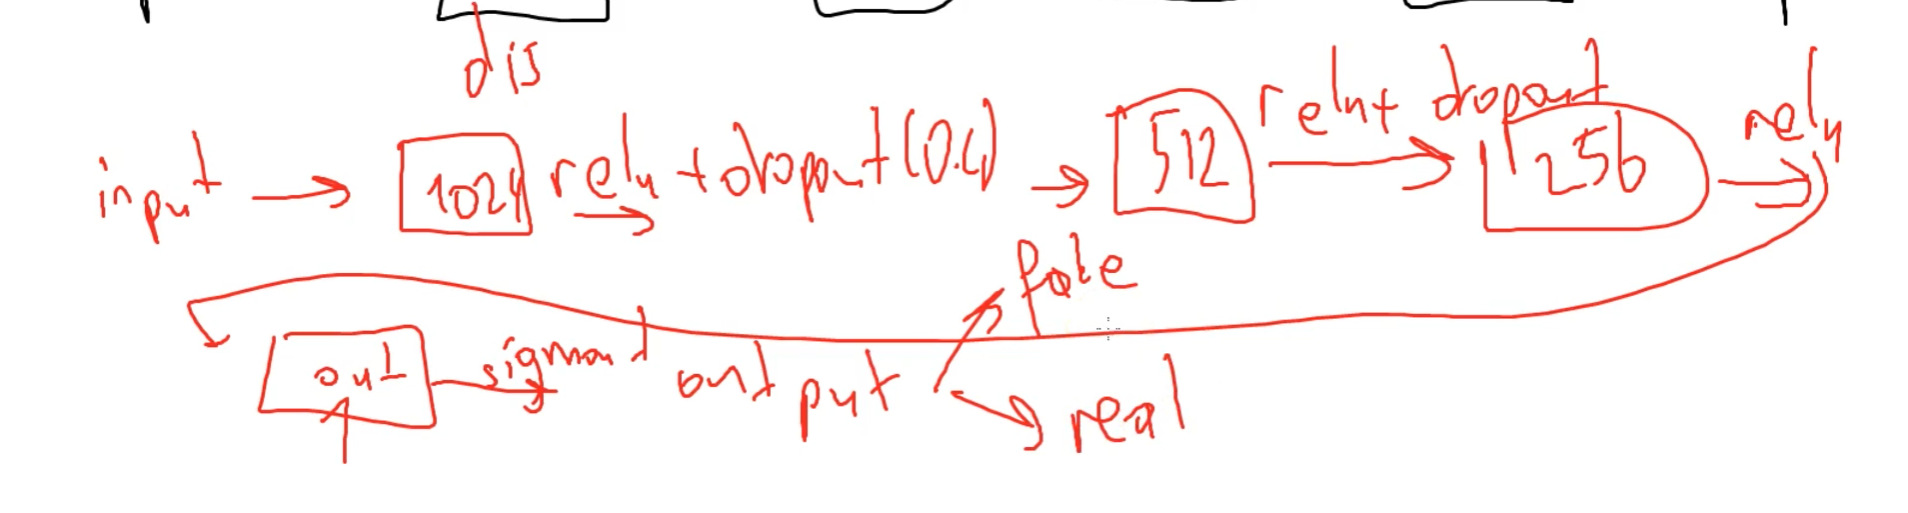 dis
input → 1024 relu + dropout (0.4) → 512 relu + dropout → 256 relu →
fake
out sigmoid output
real